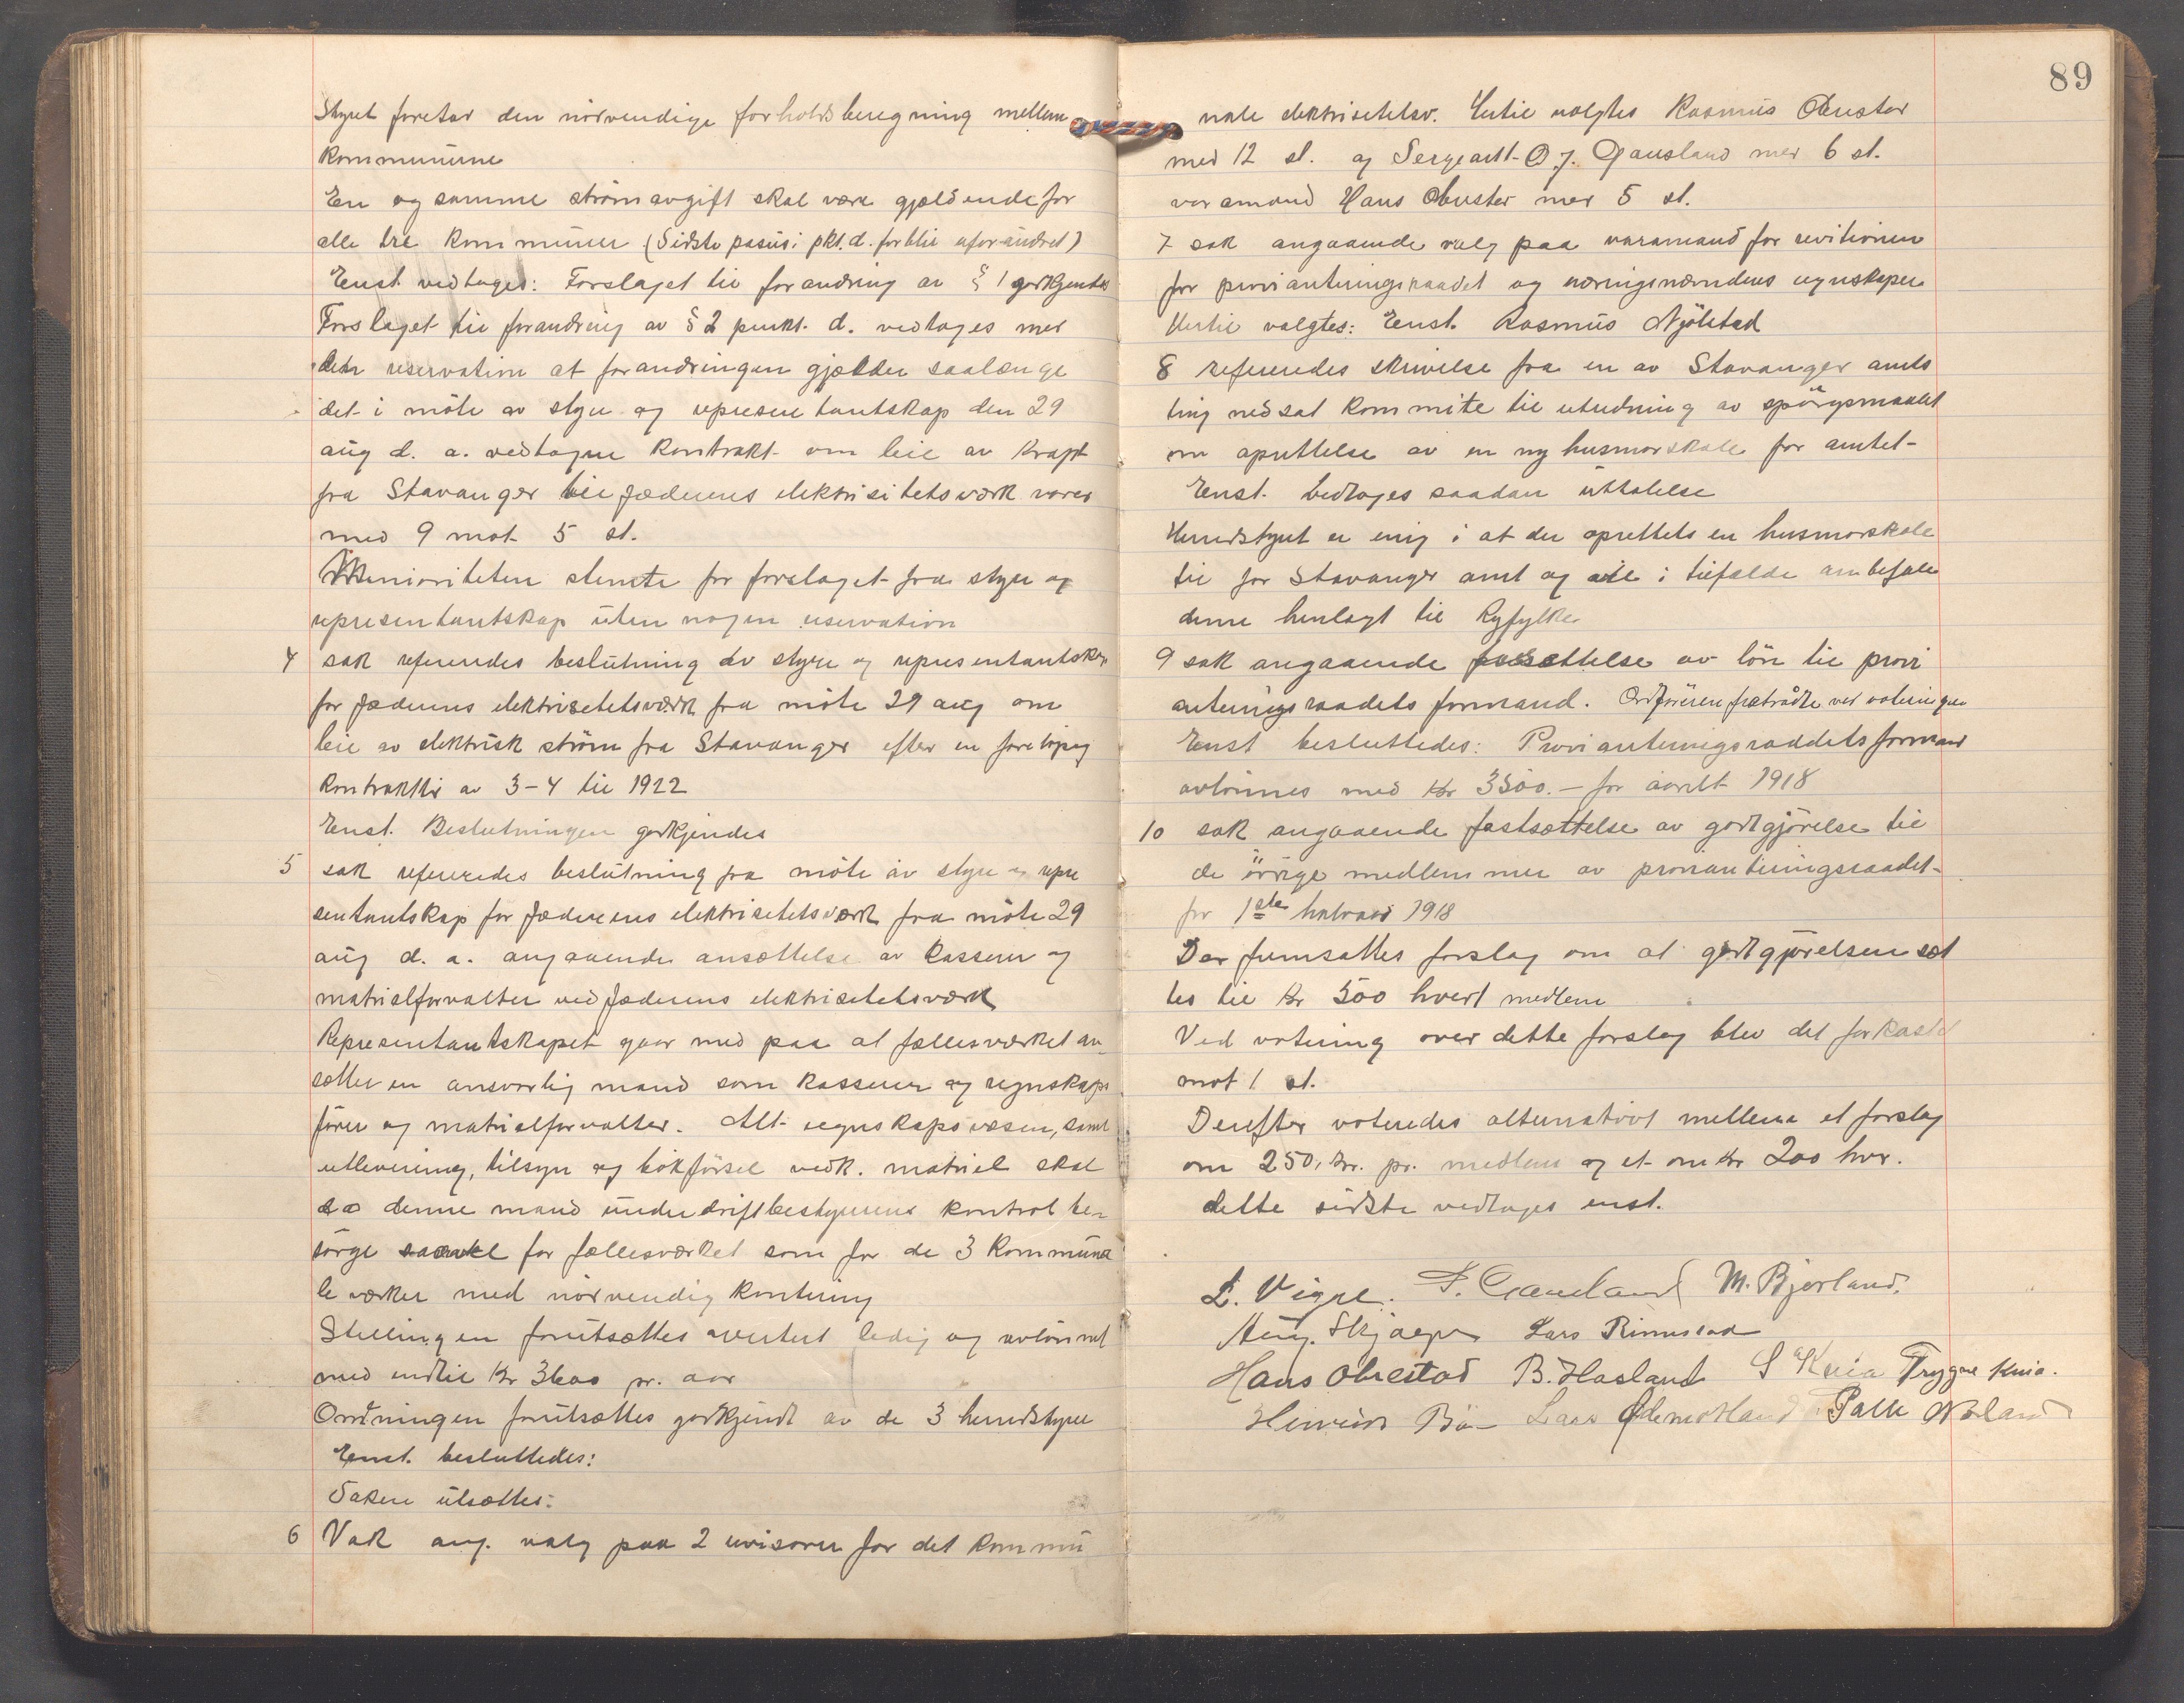 89
Styret foretar den nörvendige forholdsberegning mellem
kommunerne
En og samme strömavgift skal være gjældende for
alle tre kommuner (Sidste pasus i pkt. d. forblir uforandret)
Enst. vedtoges: Forslaget til forandring av § 1 godkjendes
Forslaget til forandring av § 2 punkt. d. vedtoges med
den reservation at forandringen gjælder saalænge
det i möte av styre og representantskap den 29
aug d. a. vedtagne kontrakt om leie av kraft
fra Stavanger til Jæderens elektrisitetsværk varer
med 9 mot 5 st.
Minioriteten stemte for forslaget fra styre og
representantskap uten nogen reservation
4 sak refereredes beslutning av styre og representantskap
for Jæderens elektrisetetsværk fra möte 29 aug om
leie av elektrisk ström fra Stavanger efter en forelöpig
kontrakttid av 3-4 til 1922
Enst. Beslutningen godkjendes
5 sak refereredes beslutning fra möte av styre og repre
sentantskap for Jæderens elektrisetetsværk fra möte 29
aug d. a. angaaende ansættelse av kasserer og
matrialforvalter ved Jæderens elektrisetetsværk
Representantskapet gaar med paa at fællesværket an-
sætter en ansvarlig mand som kasserer og regnskaps
förer og matrialforvalter. Alt regnskapsvæsen, samt
utlevering, tilsyn og bokförsel vedk. matriel skal
da denne mand under driftbestyrerens kontrol be-
sörge saavel for fællesværket som for de 3 kommuna
le værker med nörvendig kontering
Stillingen forutsættes avertert ledig og avlönnet
med indtil Kr 3600 pr. aar
Ordningen forutsættes godkjendt av de 3 herredstyrer
Enst. besluttedes:
Saken utsættes.
6 Vak ang. valg paa 2 revisorer for det kommu
nale elektrisetetsv. Hertil valgtes Rasmus Obrestar
med 12 st. og Sergeant O. J. Gausland med 6 st.
varamand Hans Obrestad med 5 st.
7 sak angaaende valg paa varamand for revitionen
for provianteringsraadet og næringsnævndens regnskaper
Hertil valgtes: Enst. Rasmus Njölstad
8 refereredes skrivelse fra en av Stavanger amts
ting nedsat kommite til utredning av spörgsmaalet
om oprettelse av en ny husmorskole for amtet
Enst. vedtoges saadan uttalelse
Herredstyret er enig i at der oprettets en husmorskole
til for Stavanger amt og vil i tilfælde anbefale
denne henlagt til Ryfylke
9 sak angaaende fastsættelse av lön til provi
anteringsraadets formand. Ordföreren fratrådte ved voteringen
Enst besluttedes: Provianteringsraadets formand
avlönnes med Kr 3500.- for aaret 1918
10 sak angaaende fastsættelse av godtgjörelse til
de övrige medlemmer av provianteringsraadet
for 1ste halvaar 1918
Der fremsattes forslag om at godtgjörelsen sæt
tes til Kr 500 hvert medlem
Ved votering over dette forslag blev det forkastet
mot 1 st.
Derefter voteredes alternativt mellem et forslag
om 250,- kr. pr. medlem og et om Kr 200 hver.
dette sidste vedtoges enst.
L. Vigre. M. Bjorland.
Aug. Skjaeger Lars Rimestad
Hans Obrestad B. Hasland S Kvia Trygve Kvia.
Henrik Bö Lars Ødemotland Palle Norland